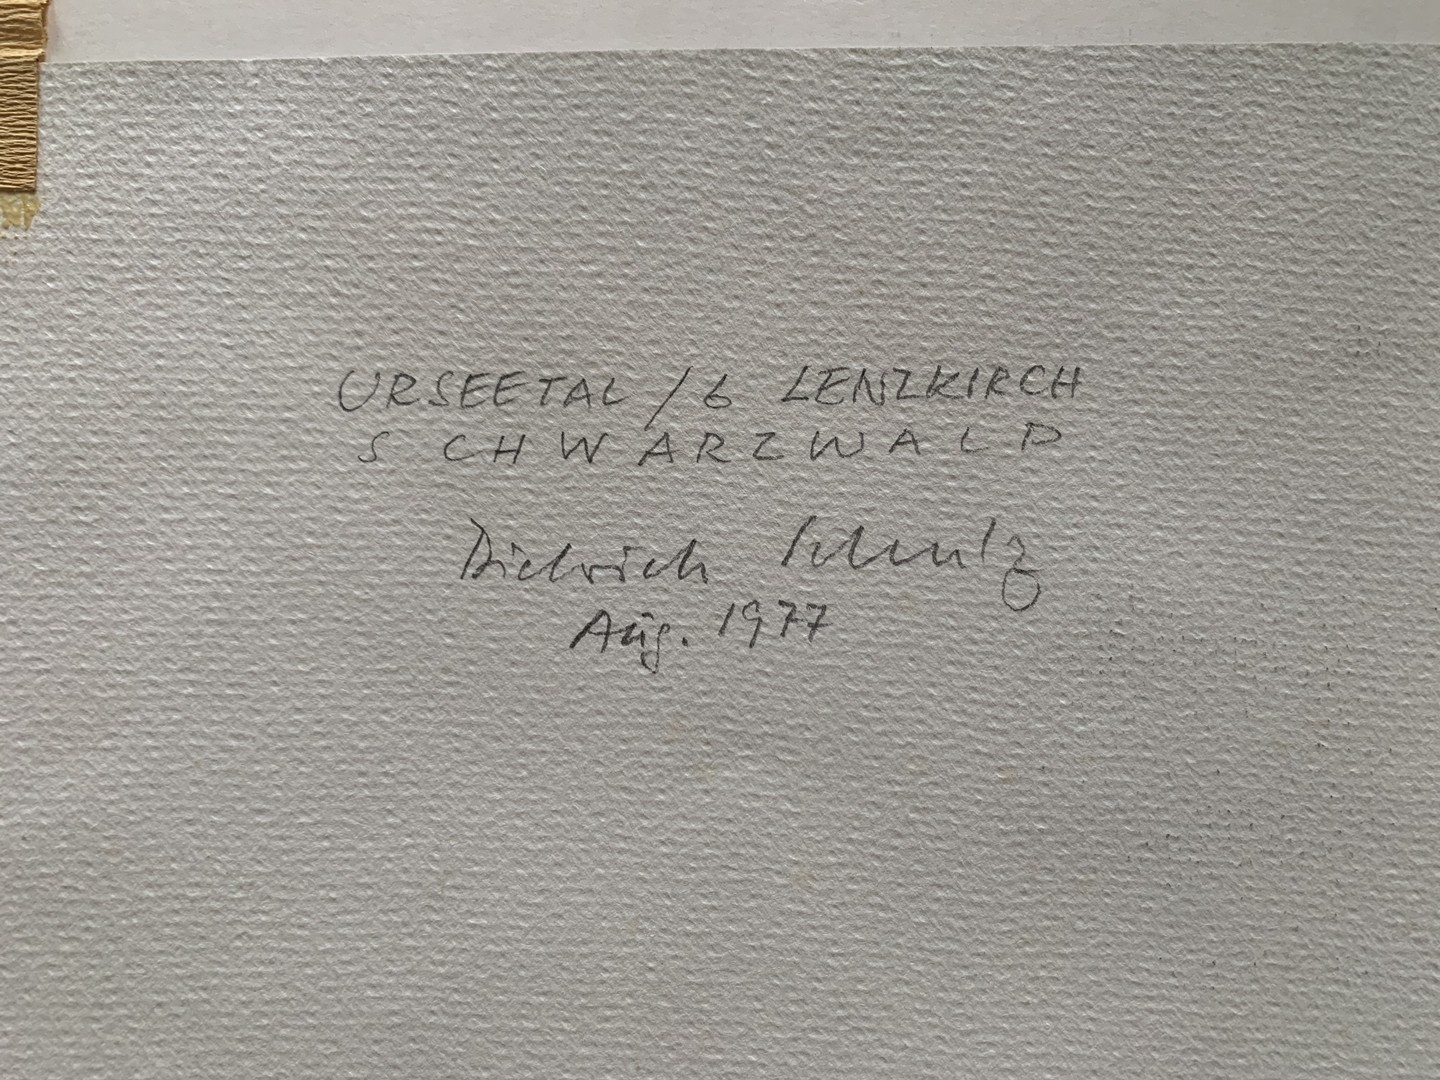 URSEETAL / b LENZKIRCH
SCHWARZWALD
Dietrich Schulz
Aug. 1977